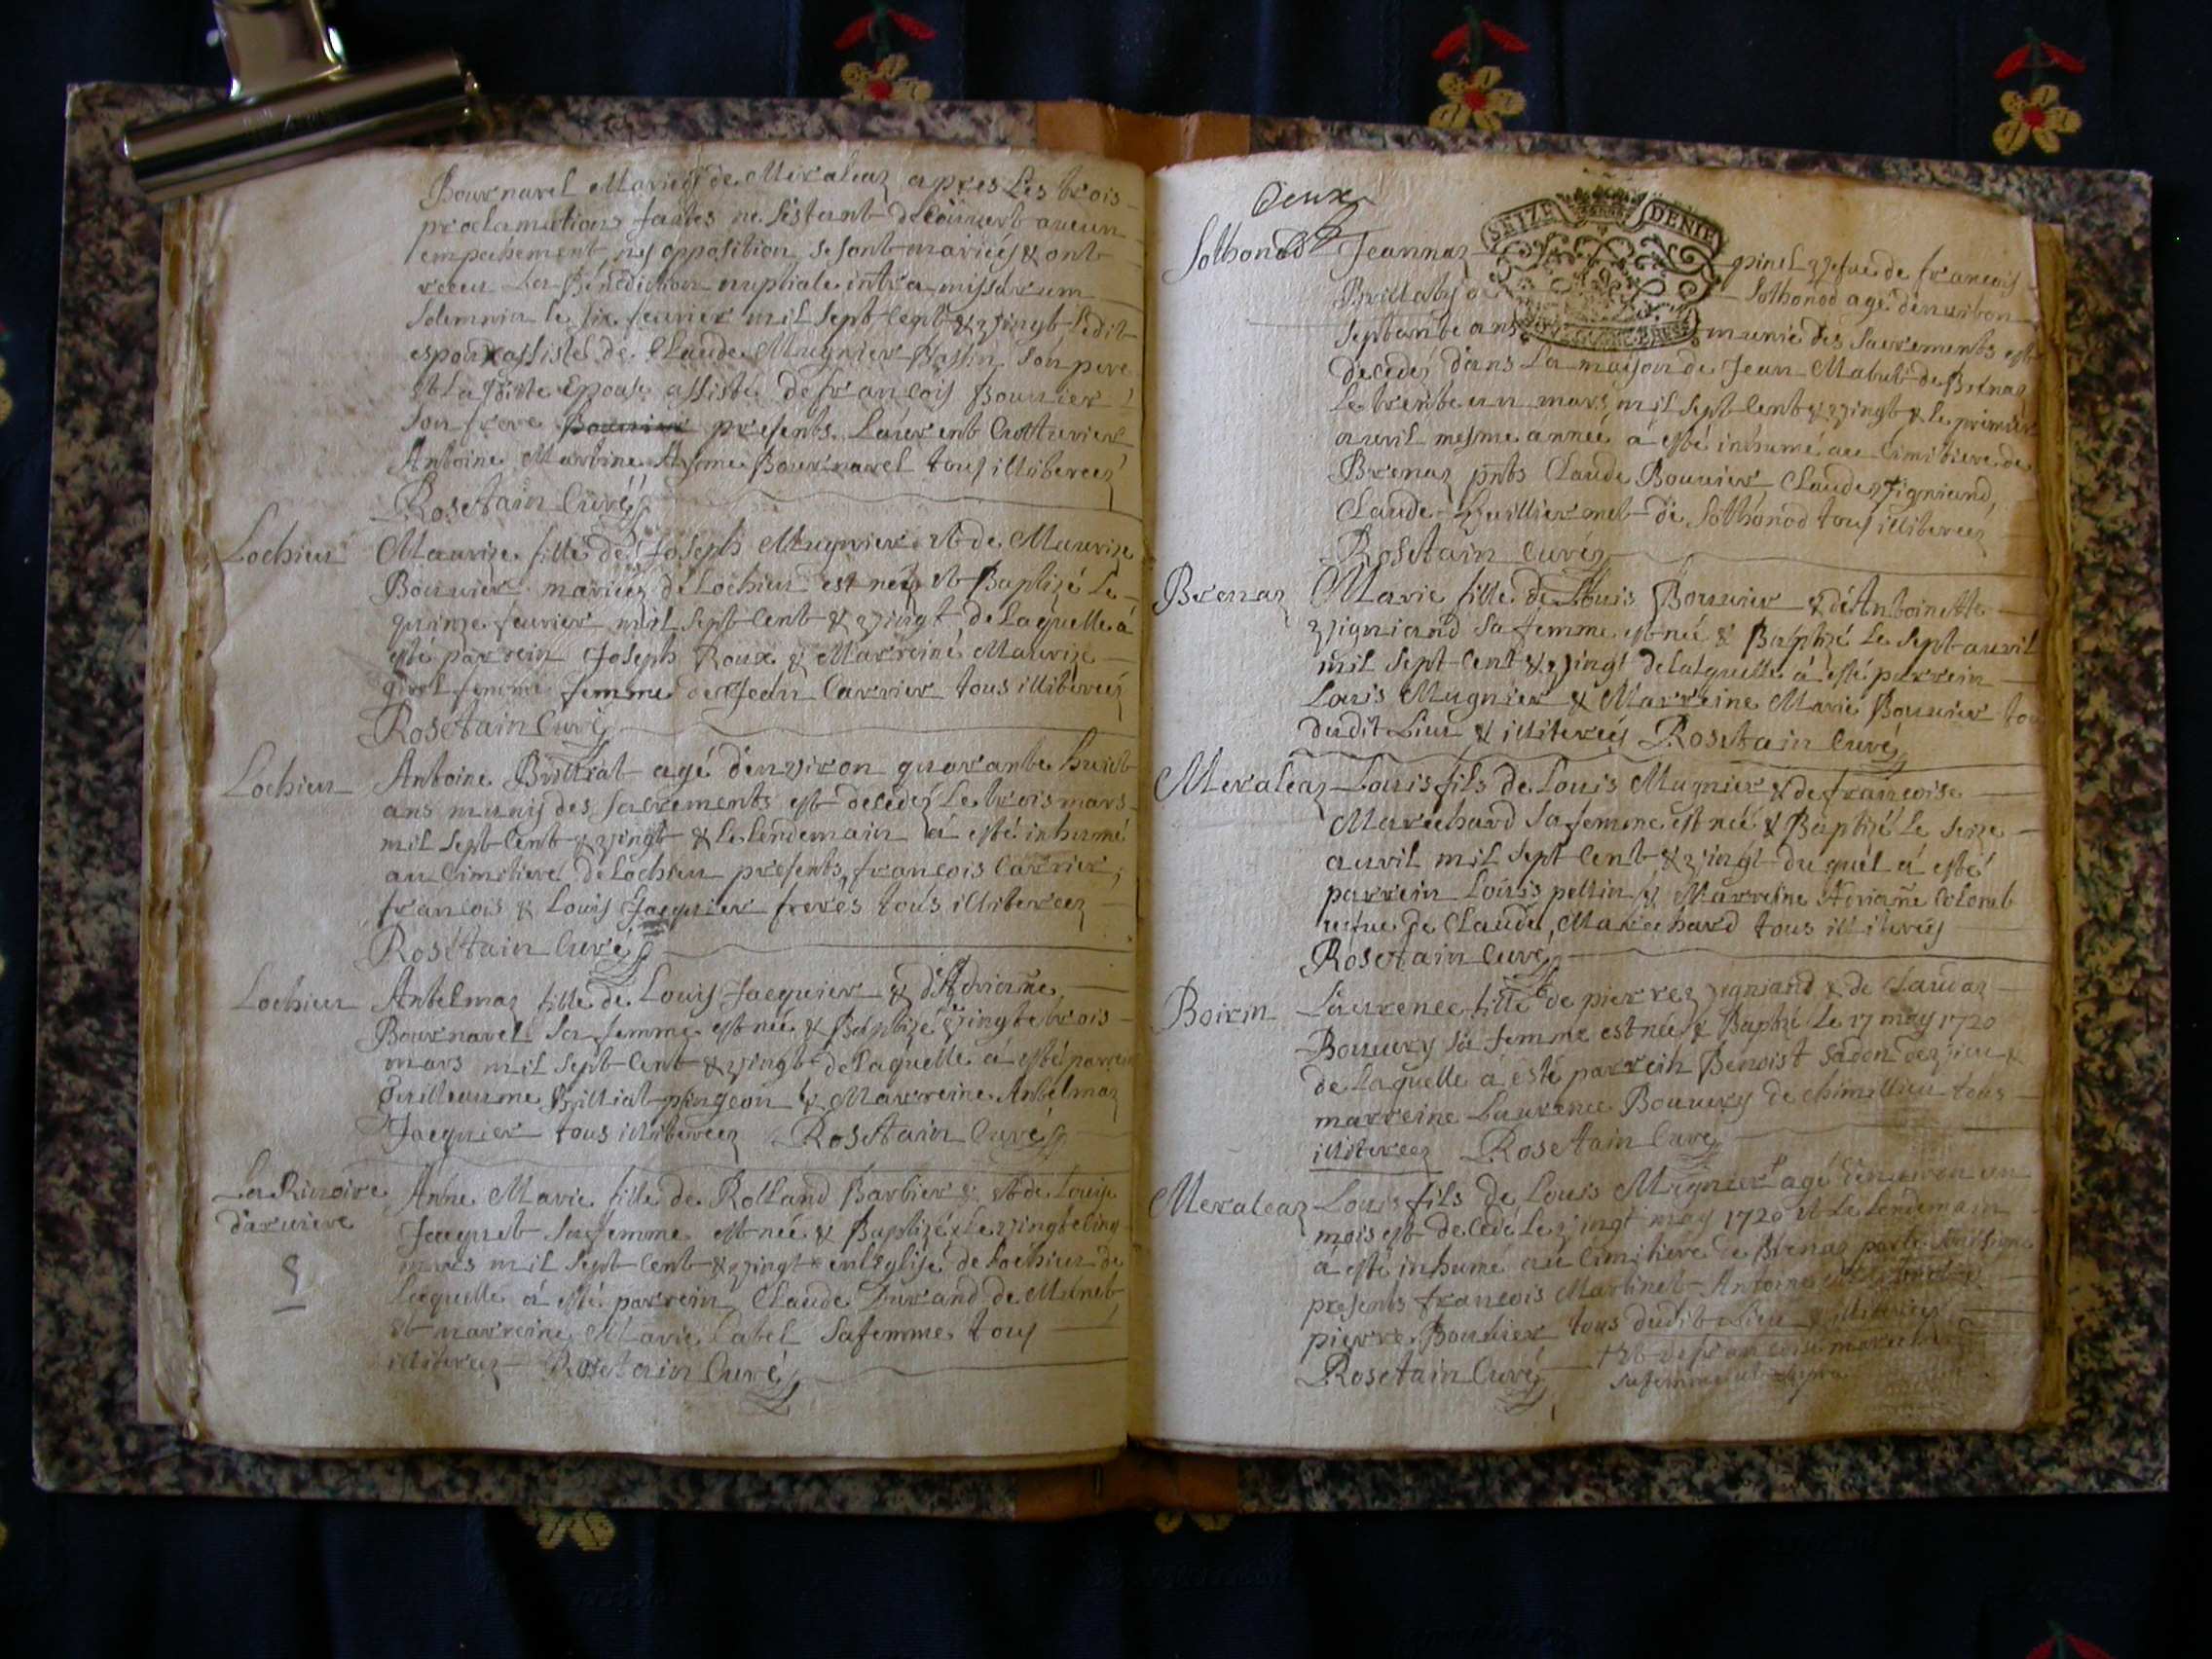 Bournavel Mariés de Méraleaz apres Les trois
proclamations faites ne s'estant decouvert aucun
empechement ny opposition se sont mariés & ont
receu La Bénédiction nuptiale intra missarum
solemnia le six feuvrier mil sept cent & vingt Ledit
espoux assisté de Claude Mugnier Bassin son pere
et La ditte Epouse assisté de francois Bouvier
son frere presents Laurent Cutturier
Antoine Martine Ayme Bournavel tous illiterees
Rosetain Curé
Lochieu Maurize fille de Joseph Mugnier et de Maurize
Bouvier mariez de Lochieu est nez et Baptizé Le
quinze feuvrier mil sept cent & vingt de Laquelle á
esté parrein Joseph Roux & Marreine Maurize
girel femme femme de Jean Carrier tous illiterés
Rosetain Curé
Lochieu Antoine Brilliat agé d'environ quarante huict
ans munis des sacrements est decedez Le trois mars
mil sept cent & vingt & Le lendemain á esté inhumé
au Cimitiere de Lochieu presents, francois Carrier,
francois & Louis Jacquier freres tous illiterees
Rosetain Curé
Lochieu Antelmaz fille de Louis Jacquier & d'Adrianne
Bournavel sa femme est née & Baptizé vingt trois
mars mil sept cent & vingt de Laquelle á esté parrein
guilleaume Brilliat pingeon & Marreine Antelmaz
Jacquier tous illiterees Rosetain Curé
La Rivoire Anne Marie fille de Rolland Barbier & et de Louise
d'arviere Jaquet sa femme est née & Baptizé Le vingt cinq
mars mil sept cent & vingt en L'Eglise de Lochieu de
Laquelle á esté parrein Claude Durand de Munet
et marreine Marie Catel sa femme tous
illiterees Rosetain Curé
Deux
SEIZE DENIE
Sothonod Jeannaz pinel vefue de francois
Brillat Sothonod agé d'environ
septante ans munie des sacrements est
decedez dans La maison de Jean Mabut de Brenaz
Le trente un mars mil sept cent & vingt & Le premier
auvril mesme année á esté inhumé au Cimitiere de
Brenaz pnts Claude Bouvier Claude vigniand,
Claude Lhuillier met de Sothonod tous illiterees
Rosetain Curé
Brenaz Marie fille de Louis Bouvier & de Antoinette
vigniand sa femme est née & Baptizé Le sept auvril
mil sept cent & vingt de Laquelle á esté parrein
Louis Mugnier & Marreine Marie Bouvier tous
dudit Lieu & illiterés Rosetain Curé
Meraleaz Louis fils de Louis Mugnier & de francoise
Marechard sa femme est née & Baptizé Le seize
auvril mil sept cent & vingt duquel á esté
parrein Louis pellin & Marreine Adrianne Colomb
vefue de Claude Marechard tous illiterés
Rosetain Curé
Boirin Laurence fille de pierre vigniand & de Claudaz
Bouvery sa femme est née & Baptizé Le 17 may 1720
de Laquelle á esté parrein Benoist
marreine Laurence Bouvery de chimillieu tous
illiterees Rosetain Curé
Meraleaz Louis fils de Louis Mugnier agé d'environ un
mois est decedé Le vingt may 1720 et Le Lendemain
á esté inhumé au Cimitiere de Brenaz
presents francois Martinet Antoine
pierre Bouvier tous dudit Lieu
Rosetain Curé et de francoise
sa femme